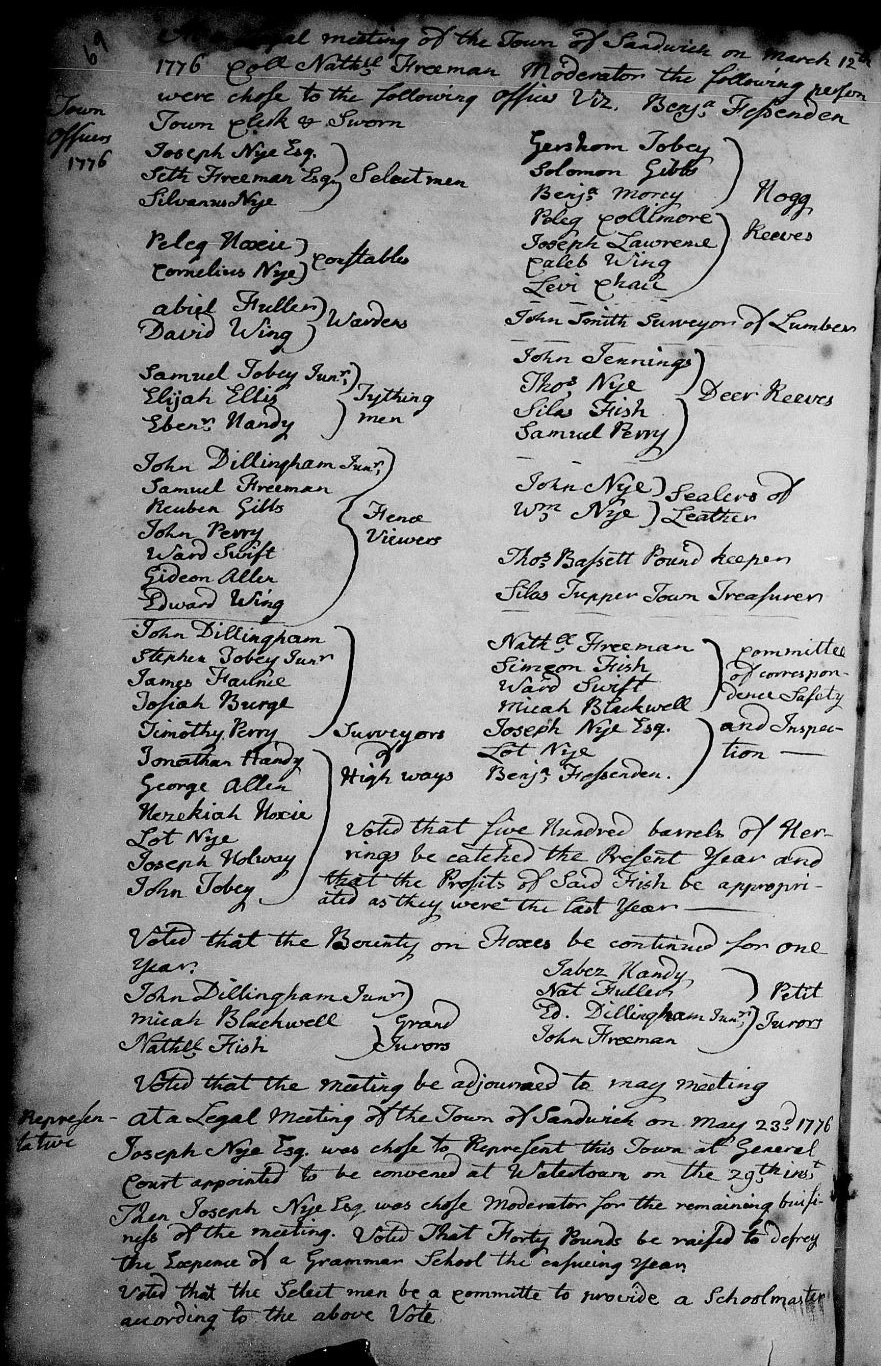 69
Legal meeting of the Town of Sandwich on march 12th
1776 Coll Nathll Freeman Moderator the following person
were chose to the following offices Viz. Benja Fessenden
Town Clerk & Sworn
Town
Officers
1776
Joseph Nye Esq.
Seth Freeman Esq. Selectmen
Silvanus Nye
Peleg Hoxie
Cornelius Nye Constables
abiel Fuller
David Wing Warders
Samuel Tobey Junr.
Elijah Ellis Tything
Ebenr. Handy men
John Dillingham Junr.
Samuel Freeman
Reuben Gibbs Fence
John Perry Viewers
Ward Swift
Gideon Allen
Edward Wing
John Dillingham
Stephen Tobey Junr
James Faunce
Josiah Burge
Timothy Perry Surveyors
Jonathan Handy of
George Allen High ways
Hezekiah Hoxie
Lot Nye
Joseph Holway
John Tobey
Gershom Tobey
Solomon Gibbs
Benja morey Hogg
Peleg Collimore Reeves
Joseph Lawrence
Caleb Wing
Levi
John Smith Surveyor of Lumber
John Jennings
Thos Nye Deer Reeves
Silas Fish
Samuel Perry
John Nye Sealers of
Wm. Nye Leather
Thos Bassett Pound keeper
Silas Tupper Town Treasurer
Nathll Freeman Committee
Simeon Fish of correspon-
Ward Swift dence Safety
micah Blackwell
Joseph Nye Esq. and Inspec-
Lot Nye tion —
Benja Fessenden.
Voted that five Hundred barrels of Her-
rings be catched the Present Year and
that the Profits of Said Fish be appropri-
ated as they were the last Year —
Voted that the Bounty on Foxes be continued for one
Year.
John Dillingham Junr
micah Blackwell Grand
Nathll Fish Jurors
Jabez Handy
Nat Fuller Petit
Ed. Dillingham Junr. Jurors
John Freeman
Voted that the meeting be adjourned to may meeting
Represen-
tative
at a Legal Meeting of the Town of Sandwich on may 23d 1776
Joseph Nye Esq. was chose to Represent this Town at General
Court appointed to be convened at Watertown on the 29th inst
Then Joseph Nye Esq was chose Moderator for the remaining busi-
ness of the meeting. Voted That Forty Pounds be raised to defrey
the Expence of a Grammar School the ensueing Year
Voted that the Select men be a Committe to provide a Schoolmaster
according to the above Vote